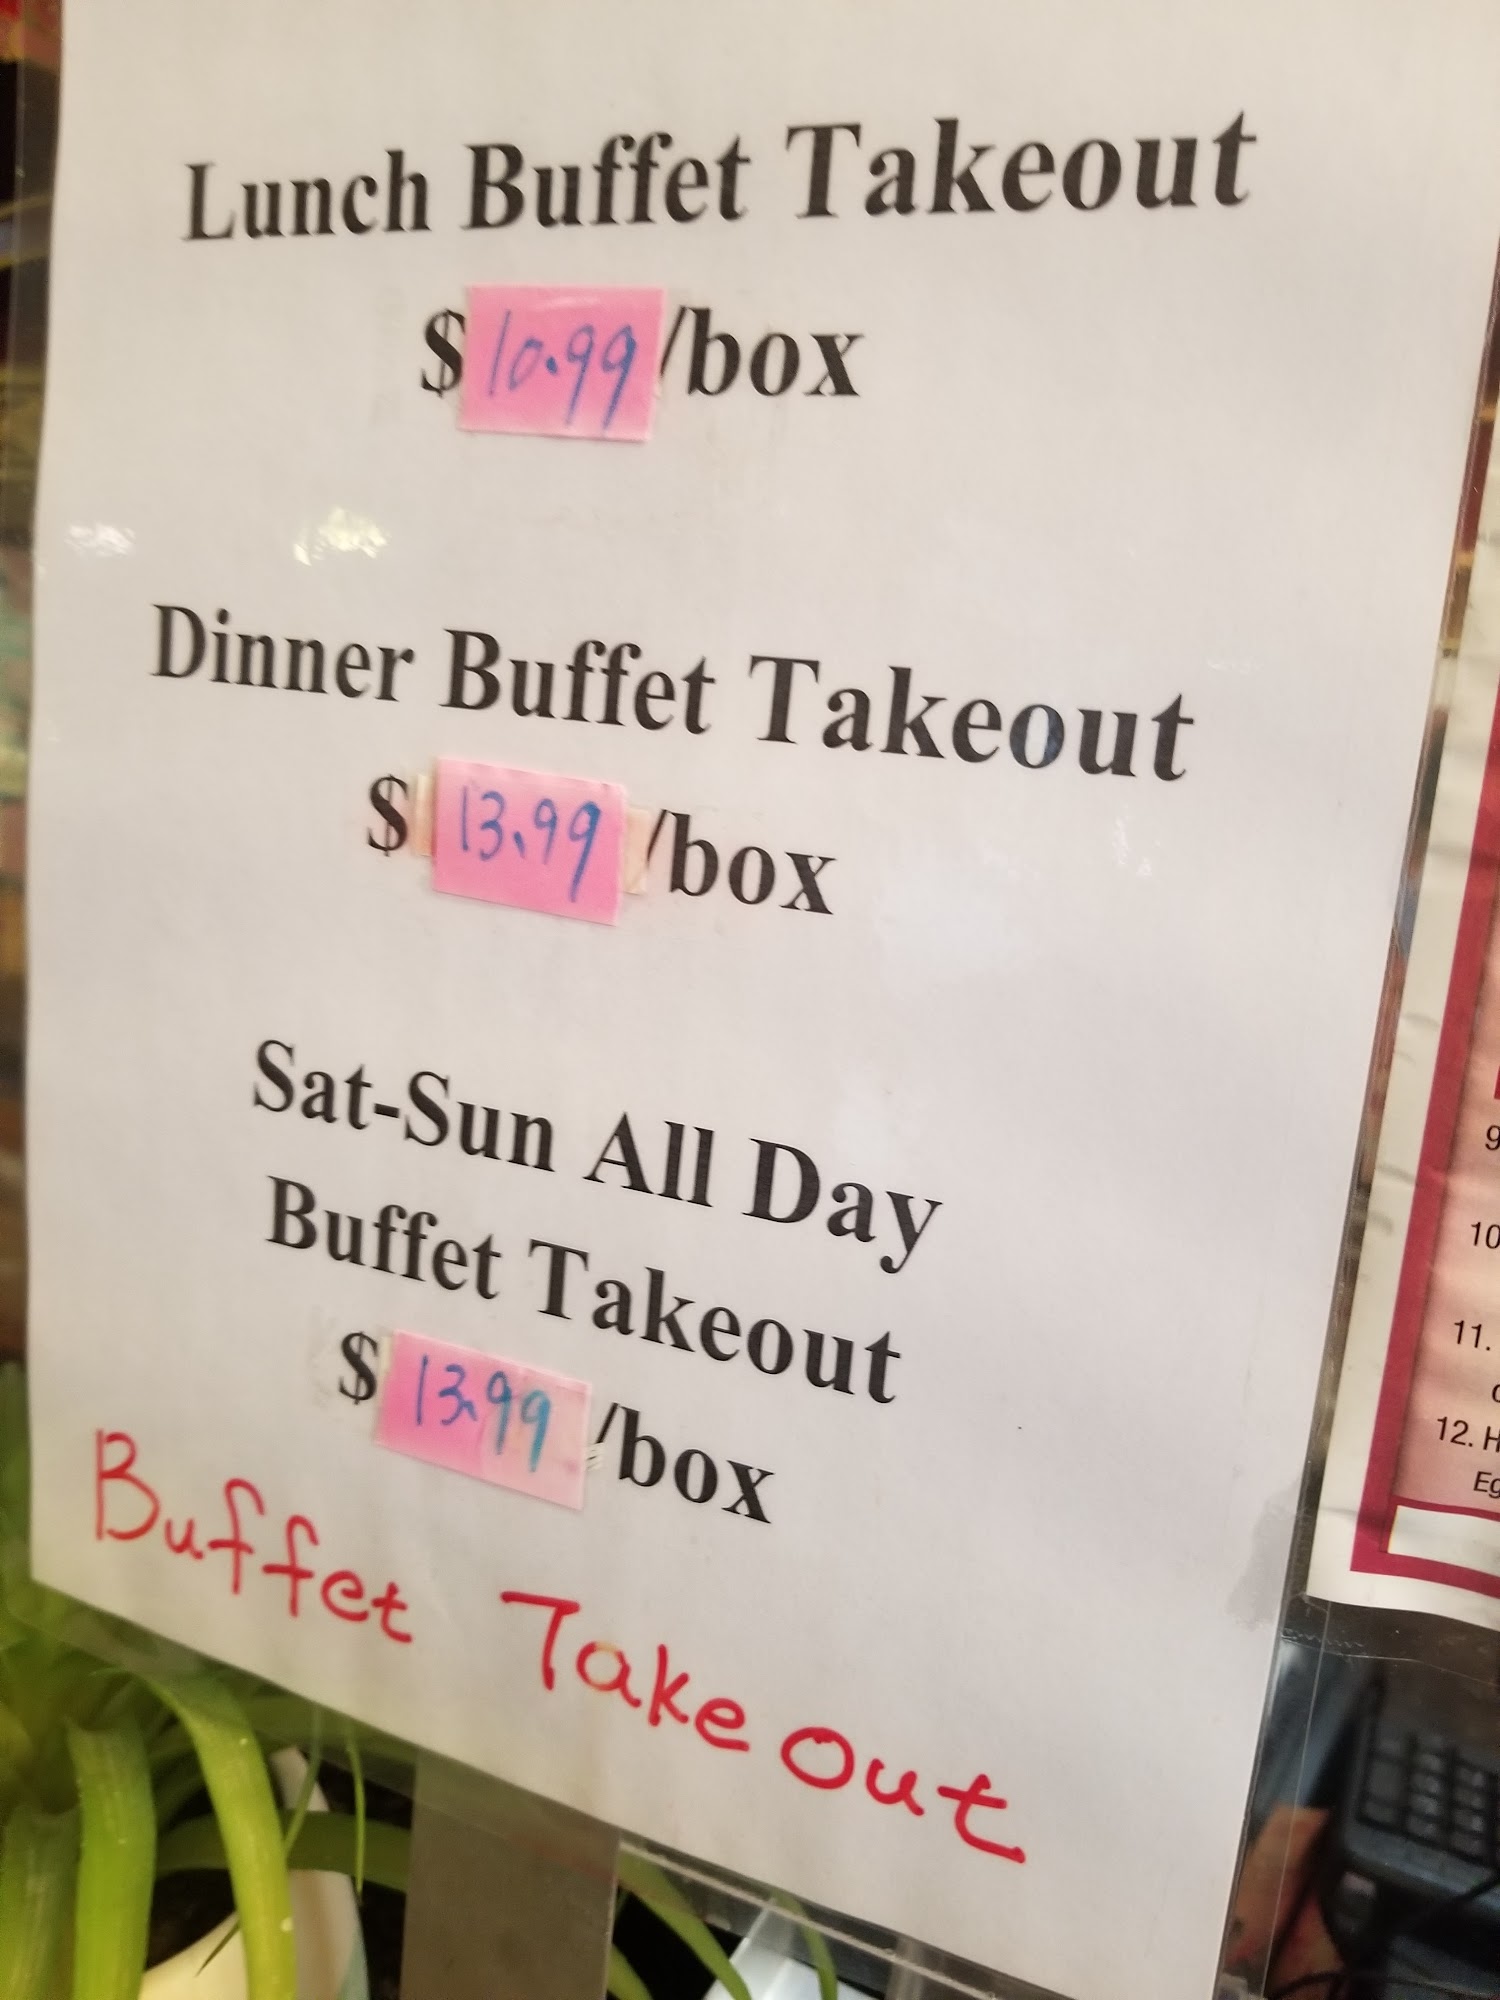 Lunch Buffet Takeout
$10.99/box
Dinner Buffet Takeout
$13.99/box
Sat-Sun All Day
Buffet Takeout
$13.99/box
Buffet Take Out
9
10
11.
12. H
Eg